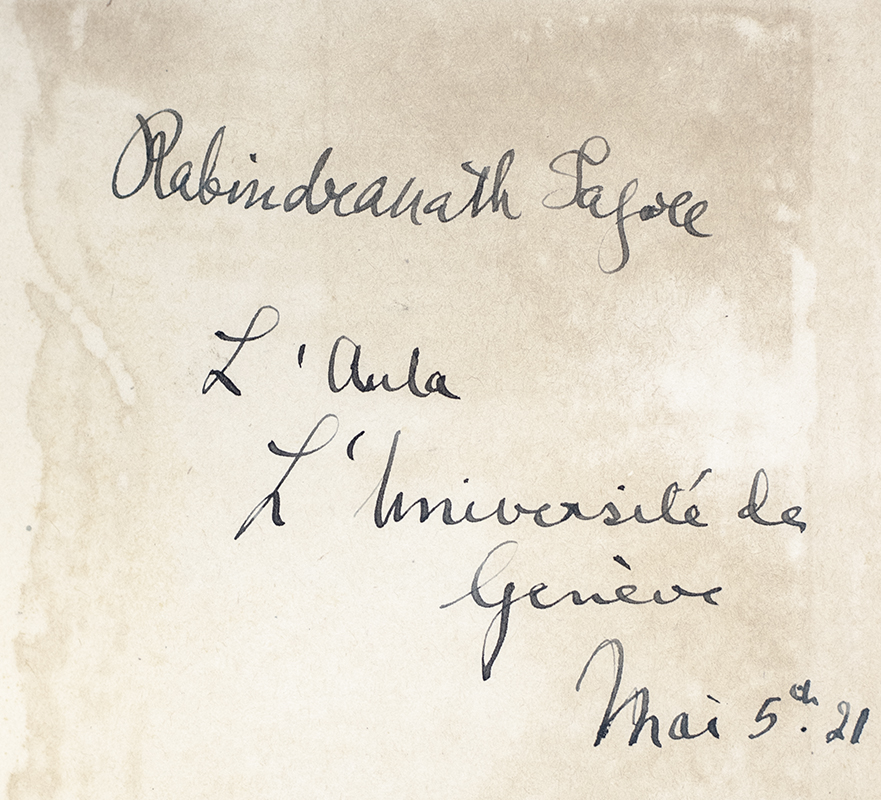 Rabindranath Tagore
L'Aula
L'Université de
Genève
Mai 5th. 21